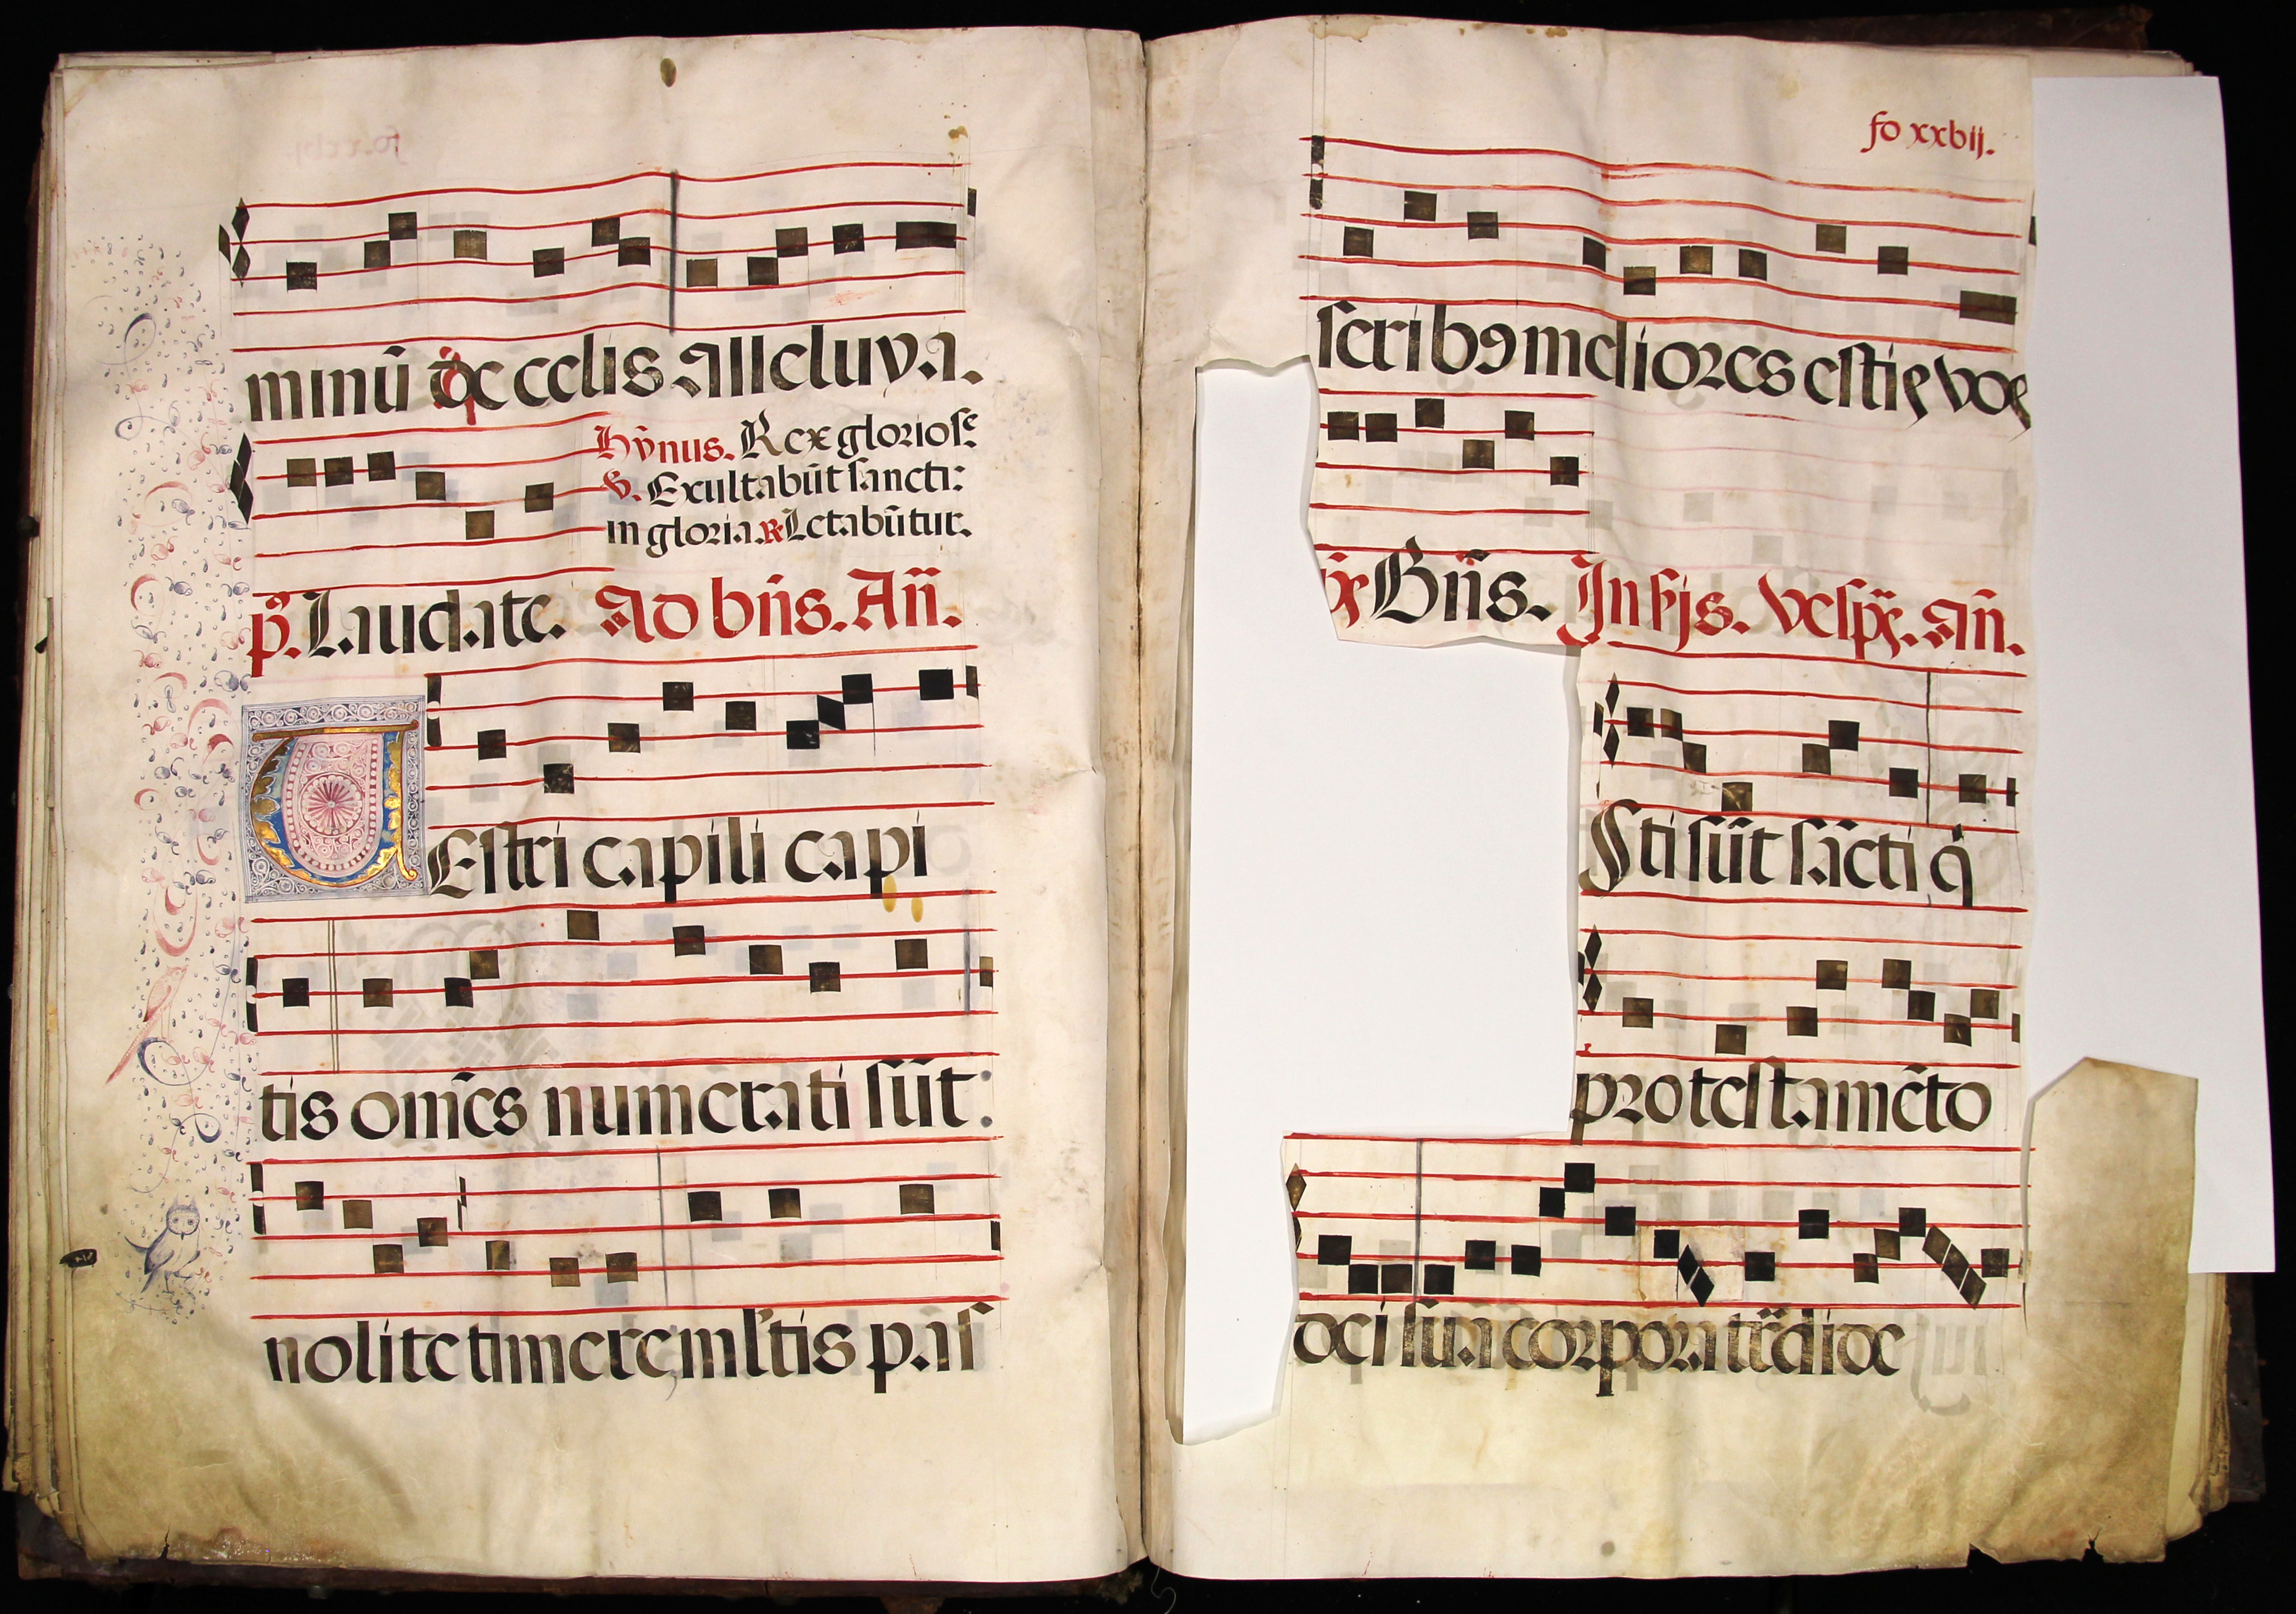 minū de celis Alleluya.
Hỹnus. Rex gloriose
℣. Exultabūt sancti:
in gloria. ℟ Letabūtur.
p̊. Laudate. Ad bn̄s. An̄.
VEstri capilli capi
tis om̄es numerati sūt:
nolite timere ml̄tis pas
fo xxbij.
seribꝯ meliores estis vos
Bn̄s. In ijs. vesp̄. An̄.
Isti sūt sācti q̇
pro testamēto
dei sua corpora tr̄dide